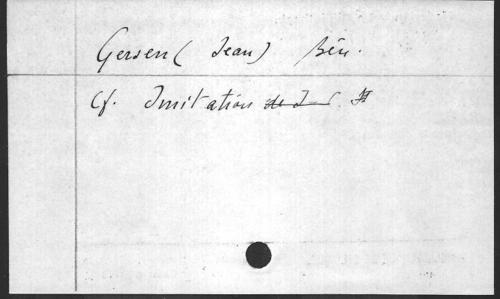 Gersen (Jean) Bén.
Cf. Imitation de J. C.